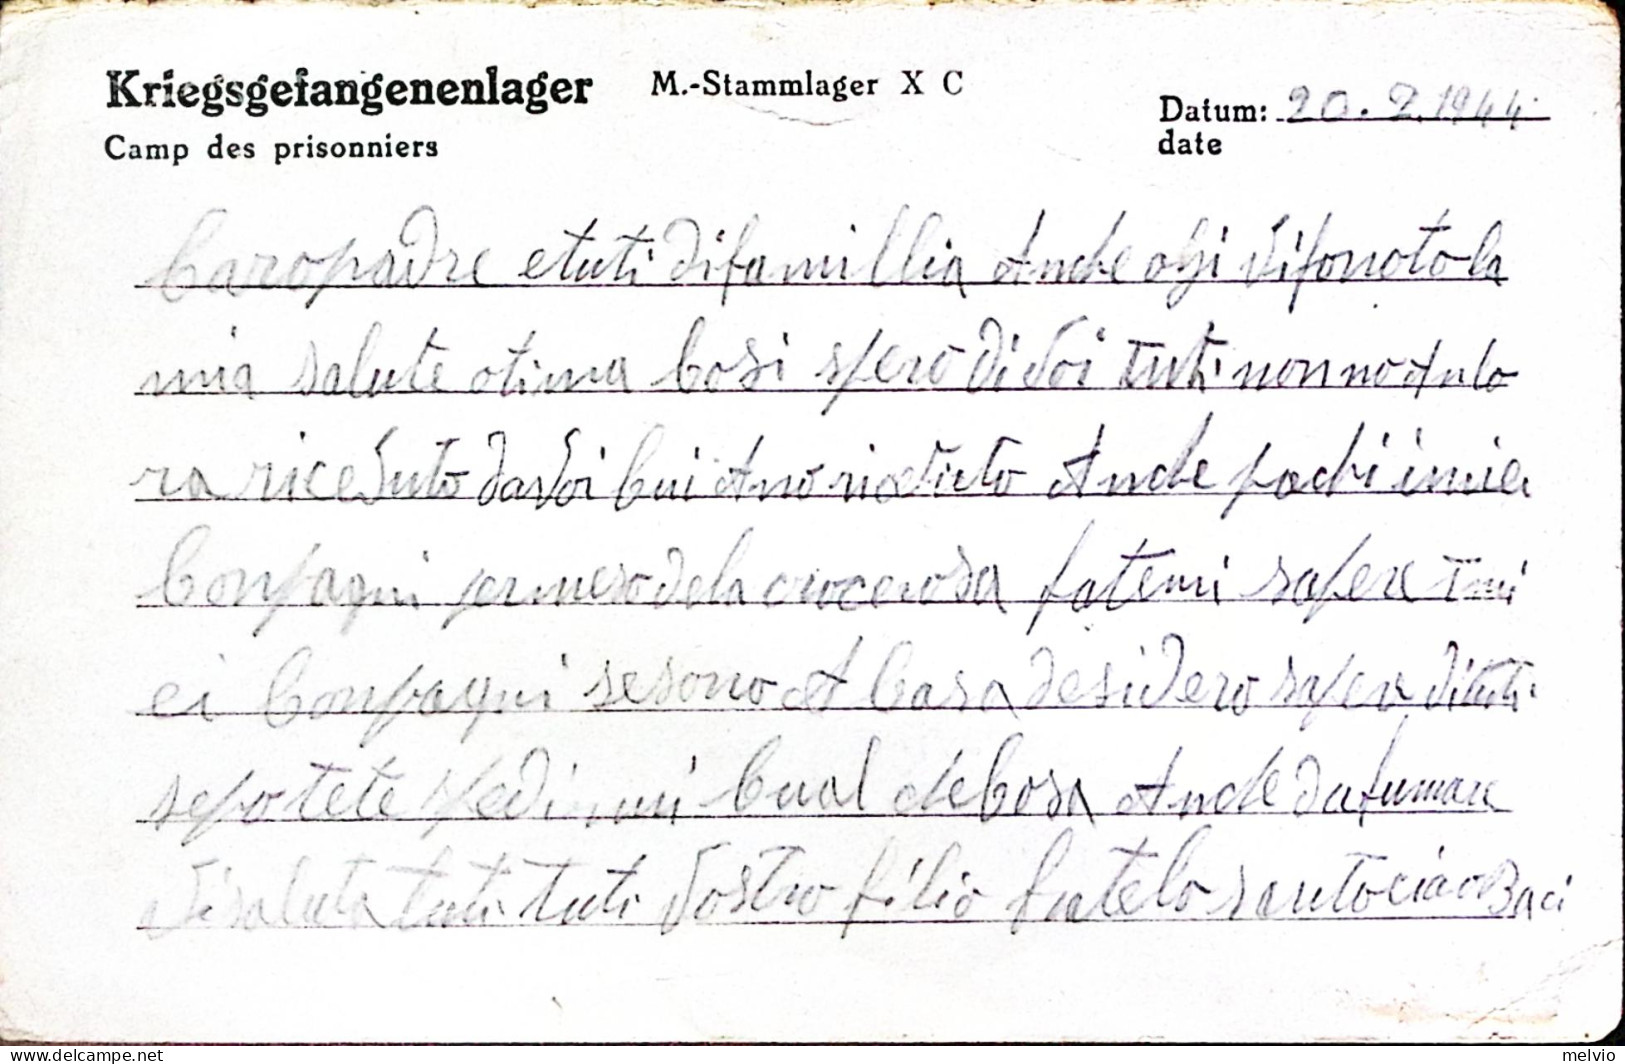 Kriegsgefangenenlager M.-Stammlager X C
Datum: 20.2.1944
Camp des prisonniers
date
Caro padre e tuti di famillia Anche ogi vi fo noto la
mia salute otima Cosi spero di voi tuti non no Anlo
ra riceduto da voi Cui Ano riceduto Anche pachi i miei
Conpagni per meso dela croce rosa fatemi sapere i mi
ei Conpagni se sono A Casa desidero saper di tuti
se potete spedirmi Cual che Cosa Anche da fumare
Vi saluta tuti tuti vostro filio fratelo santo ciao Baci
melvio